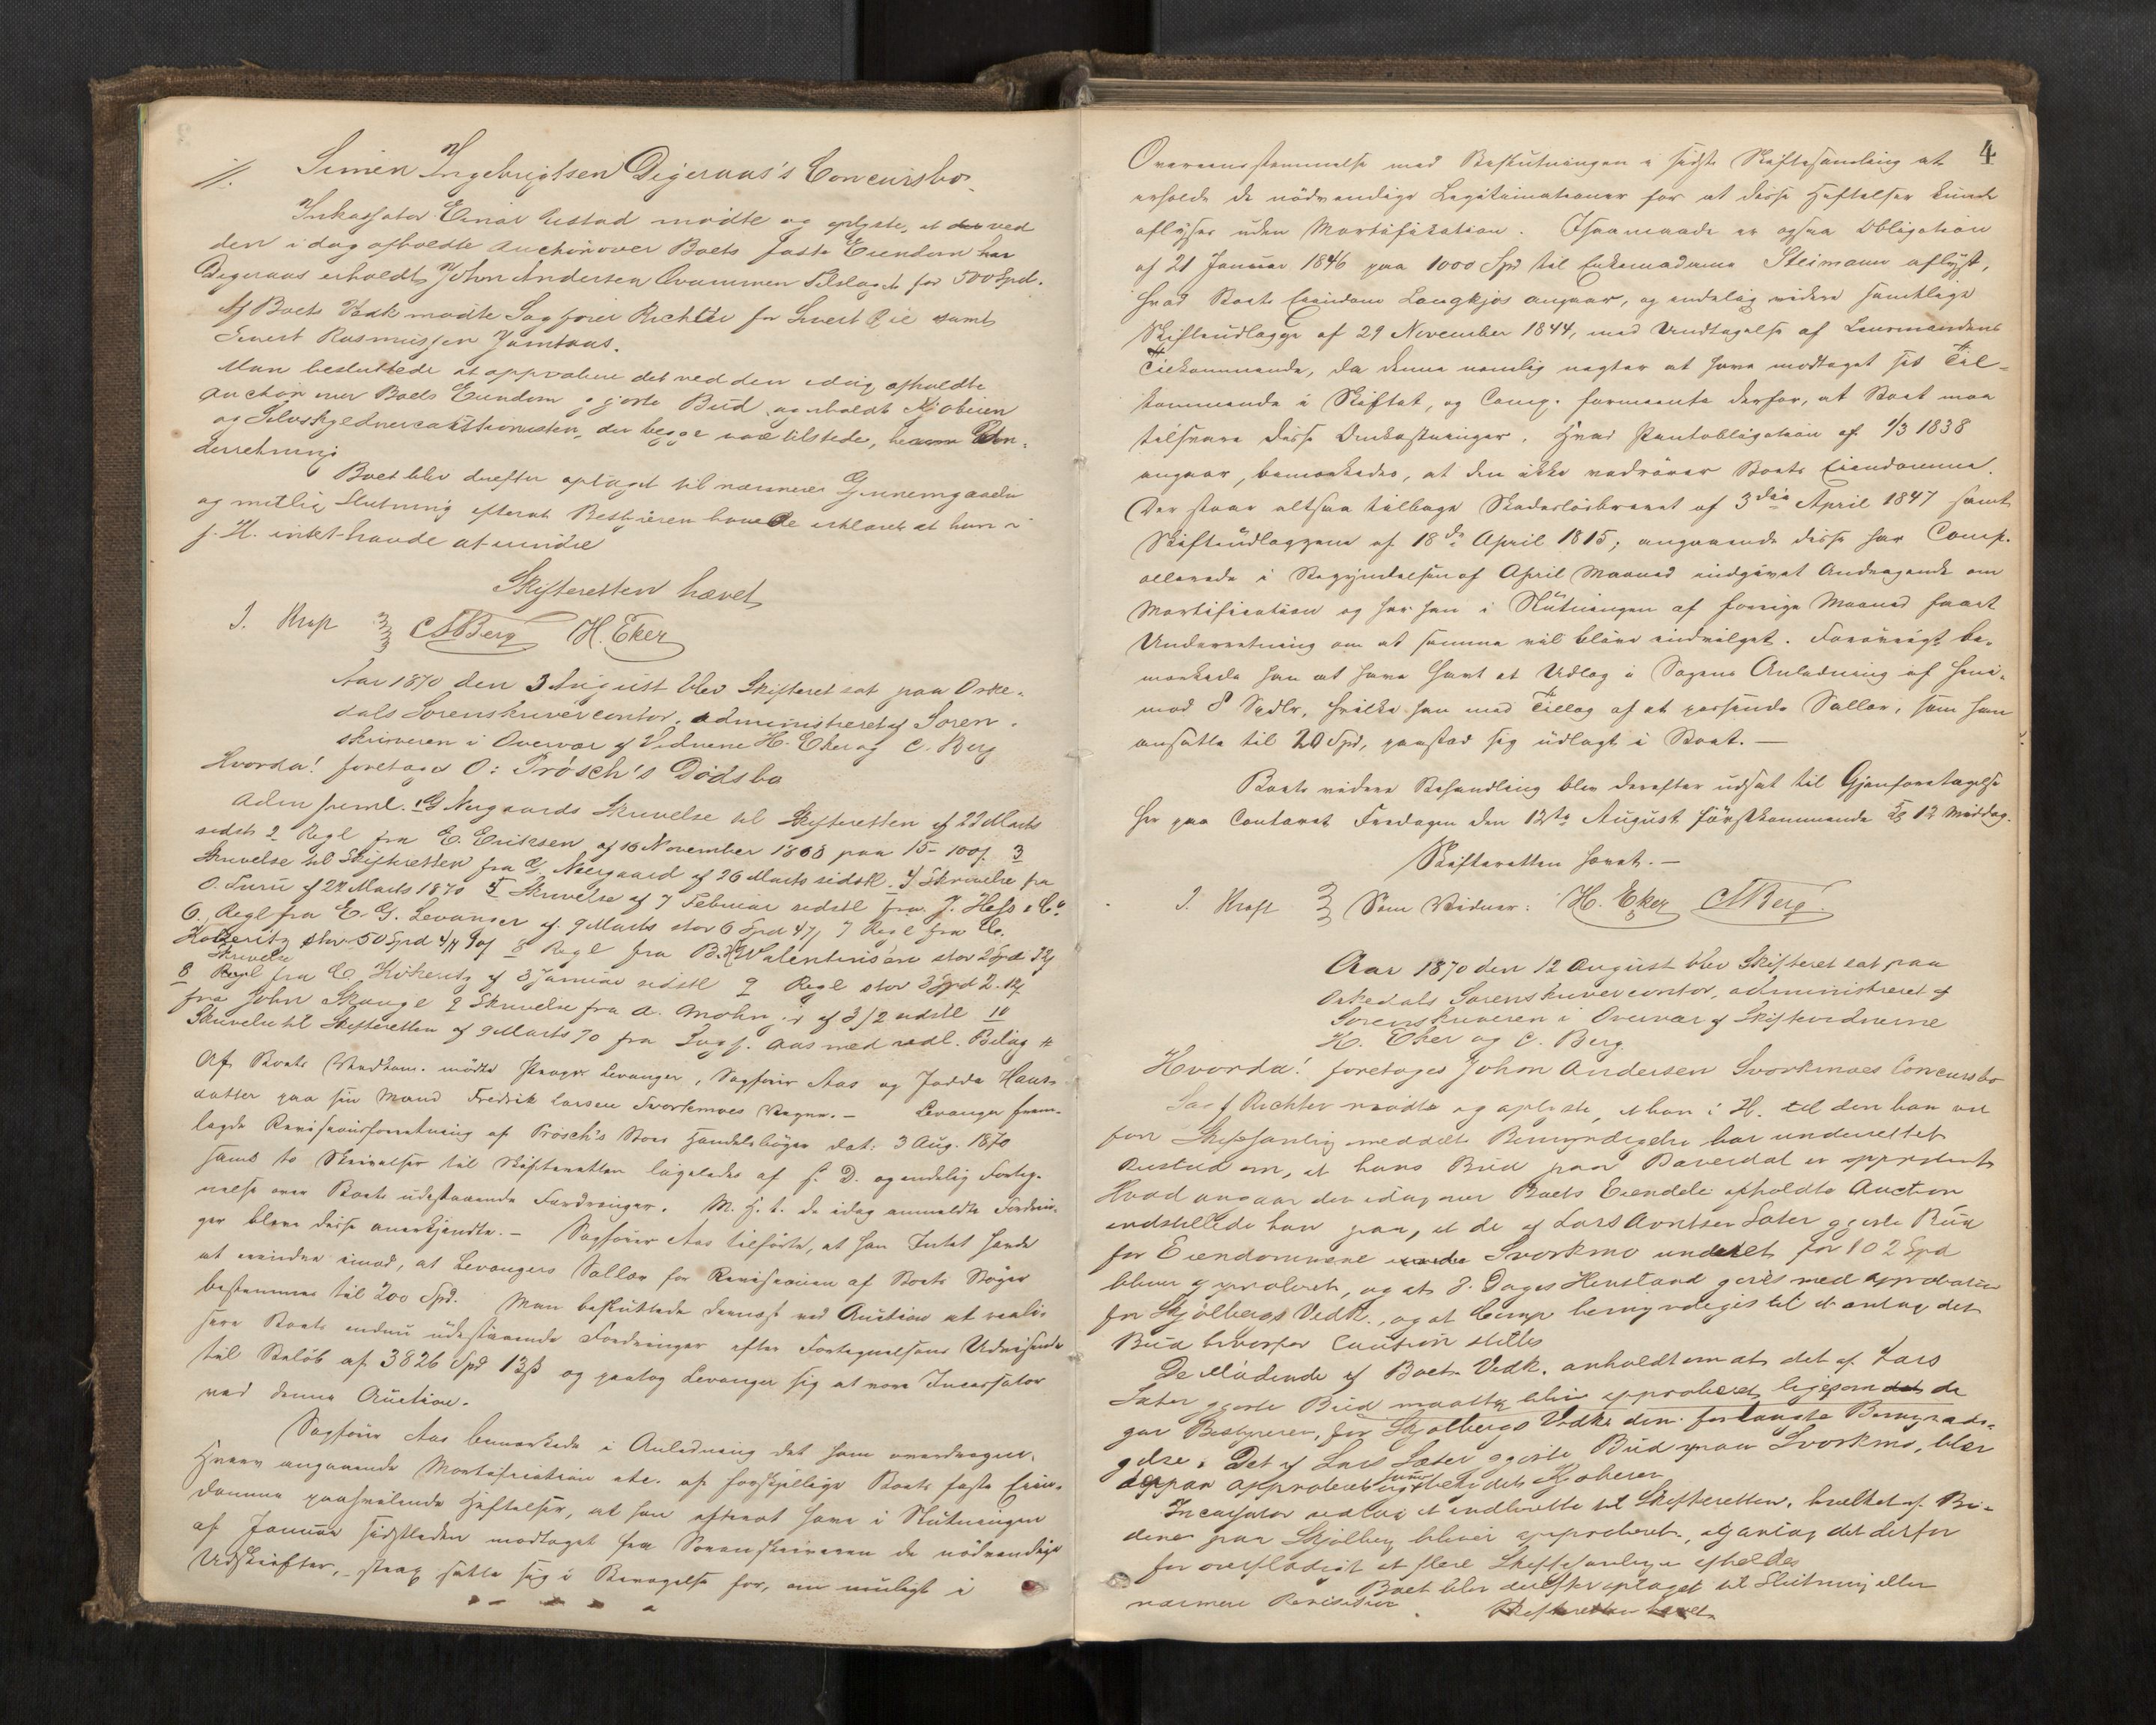 11. Simen Ingebrigtsen Digeraas's Concursbo.
Inkassator Einar Austad mødte og oplyste, at ved
den i dag afholdte Auction over Boets faste Eiendom har
Digeraas erholdt John Andersen Qvammen Tilslaget for 500 Spd.
Af Boets Vedk mødte Sagfører Richter for Sivert samt
Sivert Rasmussen Jamtaas.
Man besluttede at approbere det ved den idag afholdte
Auction over Boets Eiendom gjorte Bud og erholdt Kjøberen
og Selvskyldnercautionisten, der begge var tilstede, herom Un-
derretning
Boet blev derefter optaget til nærmere Gjennemgaaelse
og mulig Slutning efterat Bestyreren havde erklæret at han i
s. H. intet havde at erindre
Skifteretten hævet
J. Kraft CABerg H. Eker
Aar 1870 den 3 August blev Skifteret sat paa Orke-
dals Sorenskrivercontor, administreret af Soren-
skriveren i Overvær af Vidnerne H. Eker og C. Berg
Hvorda! foretoges O: Prösch's Dödsbo
Aden freml. 1 G Nergaards Skrivelse til Skifteretten af 22 Marts
sidstl 2 Regl fra E. Eriksen af 16 November 1868 paa 15- 100 3
Skrivelse til Skifteretten fra G. Neergaard af 26 Marts sidstl. 4 Skrivelse fra
O. af 24 Marts 1870 5 Skrivelse af 7 Februar sidstl fra J. Hess & Co
6. Regl fra E. G. Levanger af 9 Marts stor 6 Spd 47 7 Regl fra C.
stor 50 Spd 4 8 Regl fra B. Valentinsen stor 2 Spd 32
8 Skrivelse fra C. af 3 Januar sidstl 9 Regl stor 3 Spd 2. 12
fra John Skauge 9 Skrivelse fra A. Mohn af 3/2 sidstl 10
Skrivelse til Skifteretten af 9 Marts 70 fra Sagf. Aas med vedl. Bilag
Af Boets Vedkom. mødte Levanger, Sagfører Aas og Jodda Hans-
datter paa sin Mand Fredrik Larsen Svorkmoes Vegne. – Levanger frem-
lagde Revisionsforretning af Prösch's Boes Handelsbøger dat: 3 Aug. 1870
samt to Skrivelser til Skifteretten ligeledes af s. D. og endelig Forteg-
nelse over Boets udestaaende Fordringer. M. H. t. de idag anmeldte Fordrin-
ger bleve disse anerkjendte. – Sagfører Aas tilførte, at han Intet havde
at erindre imod, at Levangers Sallær for Revisionen af Boets Bøger
bestemmes til 200 Spd. Man besluttede dernæst ved Auction at reali-
sere Boets endnu udestaaende Fordringer efter Fortegnelsens Udvisende
til Beløb af 3826 Spd 13 ß og paatog Levanger sig at være Incassator
ved denne Auction.
Sagfører Aas bemærkede i Anledning det ham overdragne
Hverv angaaende Mortification etc. af forskjellige Boets faste Eien-
domme paahvilende Heftelser, at han efterat have i Slutningen
af Januar sidstleden modtaget fra Sorenskriveren de nødvendige
Udskrifter, strax satte sig i Bevægelse for, om muligt i
4
Overeensstemmelse med Beslutningen i sidste Skiftesamling at
erholde de nødvendige Legitimationer for at disse Heftelser kunde
aflyses uden Mortifikation. Isaamaade er ogsaa Obligation
af 21 Januar 1846 paa 1000 Spd til Enkemadame Steimann aflyst,
hvad Boets Eiendom Langkjøs angaar, og endelig videre samtlige
Skifteudlægge af 29 November 1844, med Undtagelse af Lensmandens
Tilkommende, da denne nemlig negter at have modtaget sit Til-
kommende i Skiftet, og Comp. formeente derfor, at Boet maa
tilsvare disse Omkostninger. Hvad Pantobligation af 1/3 1838
angaar, bemærkedes, at den ikke vedrører Boets Eiendomme.
Der staar altsaa tilbage Skadesløsbrevet af 3die April 1847 samt
Skifteudlæggene af 18de April 1815; angaaende disse har Comp.
allerede i Begyndelsen af April Maaned indgivet Andragende om
Mortification og har han i Slutningen af forrige Maaned faaet
Underretning om at samme vil blive indvilget. Forøvrigt be-
mærkede han at have havt et Udlæg i Sagens Anledning af heni-
mod 8 Spdlr, hvilke han med Tillæg af et passende Sallær, som han
ansatte til 20 Spd, paastod sig udlagt i Boet. –
Boets videre Behandling blev derefter udsat til Gjenforetagelse
her paa Contoret Fredagen den 12te August førstkommende Kl 12 Middag.
Skifteretten hævet. –
J. Kraft Som Vidner: H. Eker CABerg.
Aar 1870 den 12 August blev Skifteret sat paa
Orkedals Sorenskrivercontor, administreret af
Sorenskriveren i Overvær af Skiftevidnerne
H. Eker og C. Berg.
Hvorda! foretoges John Andersen Svorkmoes Concursbo
Sagf Richter mødte og oplyste, at han i H. til den ham ved
forr Skiftesamling meddelte Bemyndigelse har underrettet
Rustad om, at hans Bud paa Baverdal er approberet
Hvad angaar den idag over Boets Eiendele afholdte Auction
indstillede han paa, at de af Lars Arntsen Sæter gjorte Bud
for Eiendommene Svorkmo for 102 Spd
bliver approberet, og at 8. Dages Henstand gives med Approbation
for Skjølbergs Vedk., og at Comp bemyndiges til at antage det
Bud hvorfor Caution stilles
De Mødende af Boets Vedk. anholdt om at det af Lars
Sæter gjorte Bud maatte blive approberet ligesom de
gav Bestyreren, for Skjølbergs Vedk. den forlangte Bemyndi-
gelse. Det af Lars Sæter gjorte Bud paa Svorkmo, blev
approberet Kjøberen
Incassator vedtog at indberette til Skifteretten, hvilket af Bu-
dene paa Skjølberg bliver approberet, og ansaa det derfor
for overflødigt at flere Skiftesamlinger afholdes
Boet blev derefter optaget til Slutning eller
nærmere Revision. Skifteretten hævet.